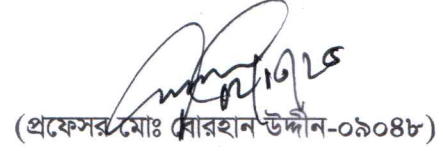 (প্রফেসর মোঃ বোরহান উদ্দীন-০৯০৪৮)